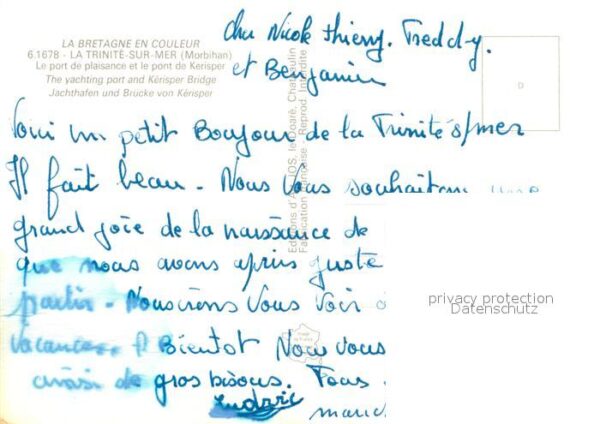 LA BRETAGNE EN COULEUR
6.1678 - LA TRINITÉ-SUR-MER (Morbihan)
Le port de plaisance et le pont de Kerisper
The yachting port and Kérisper Bridge
Jachthafen und Brücke von Kérisper
Nicole Thierry. Freddy.
et Benjamin
Voici un petit Bonjour de la Trinité s/mer
Il fait beau. Nous Vous souhaitons une
grand joie de la naissance de
que nous avons apris juste
partir. Nous irons Vous Voir
Vacances. A Bientot Nous Vous
de gros bisous. Tous
D
privacy protection
Datenschutz